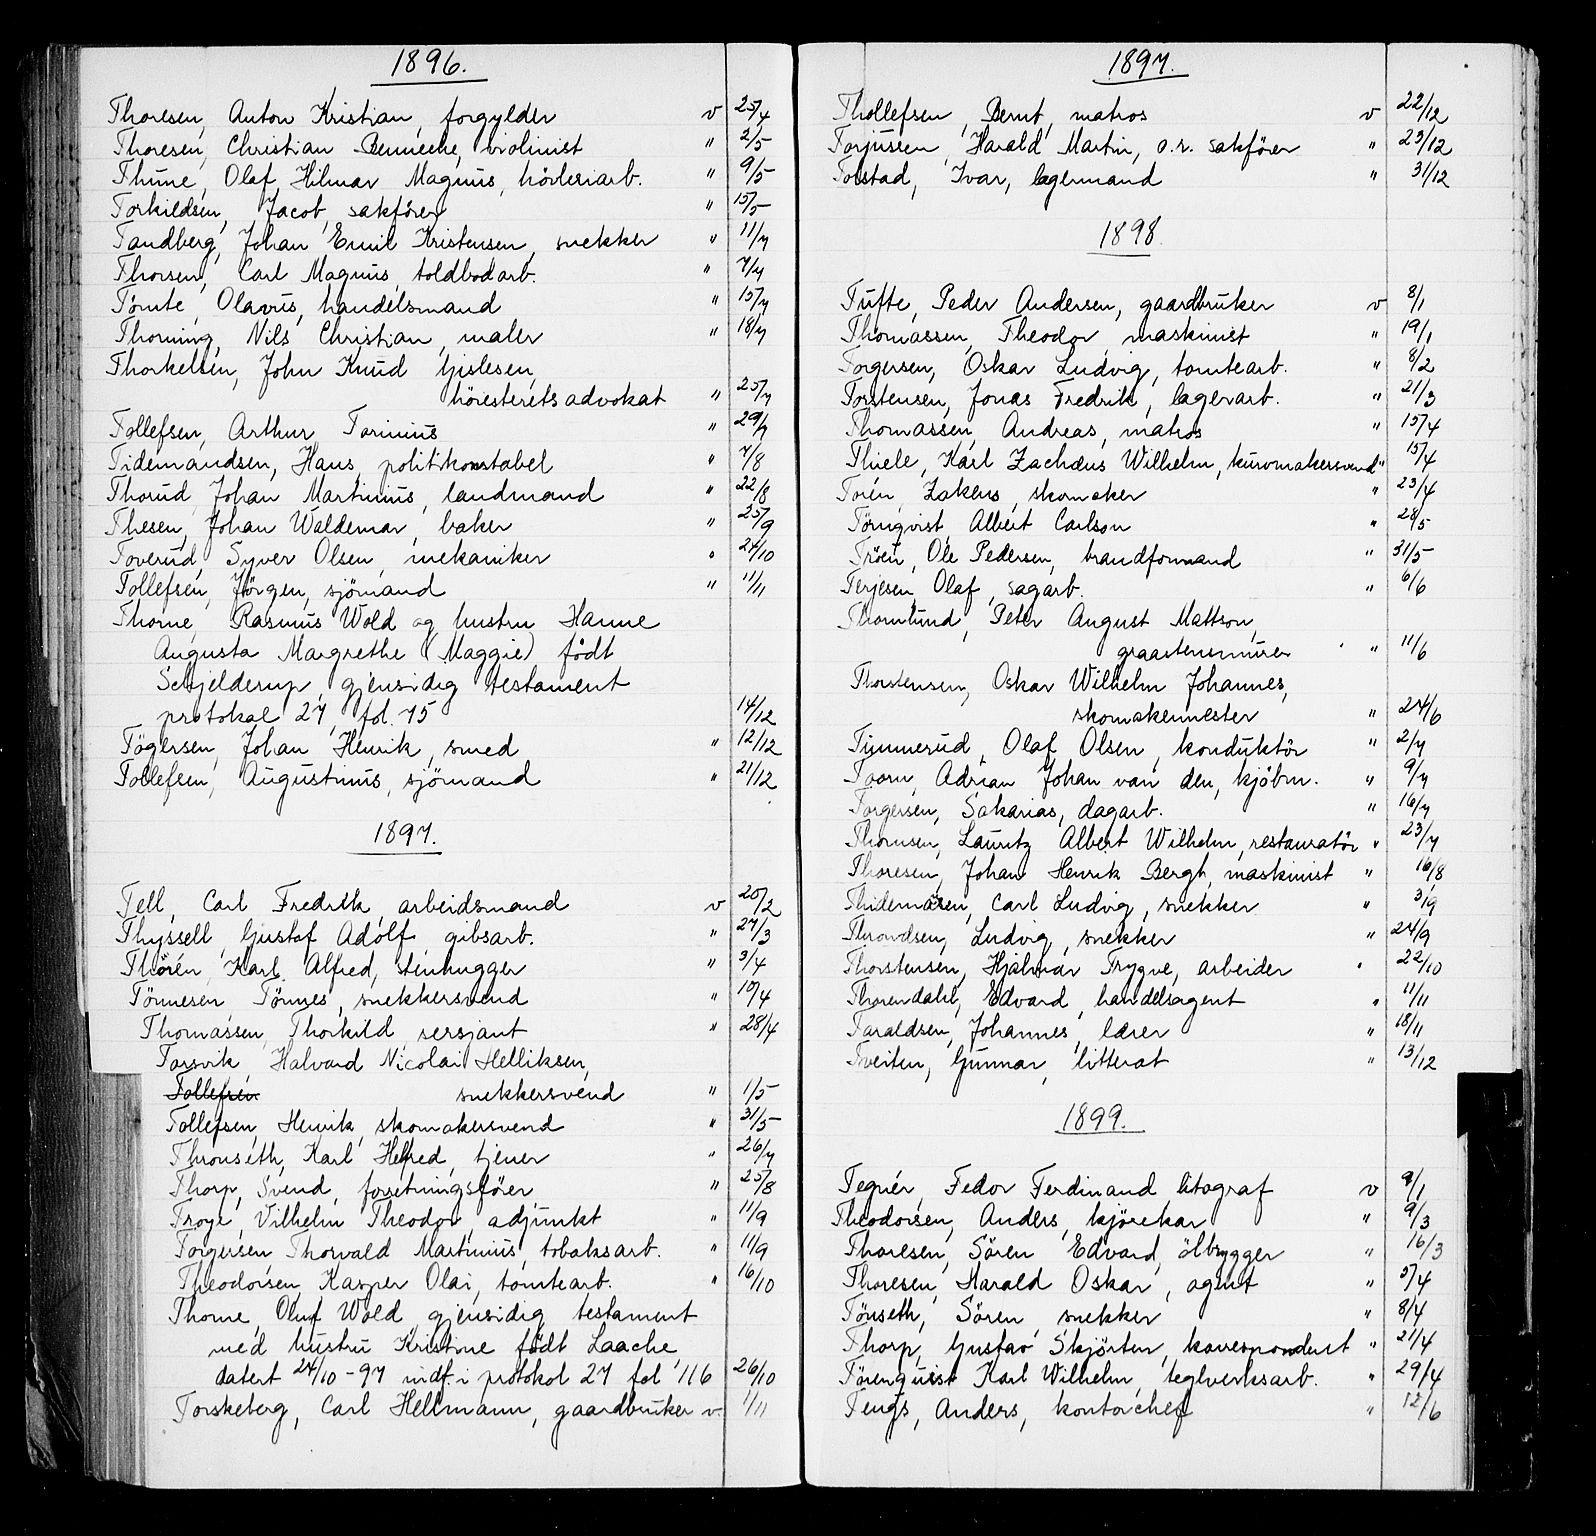 1896.
Thoresen, Anton Kristian, forgylder v 25/4
Thoresen, Christian Benneche, violinist " 2/5
Thune, Olaf Hilmar Magnus, hövleriarb. " 9/5
Torkildsen, Jacob, sakfører " 15/5
Tandberg, Johan Emil Kristensen, snekker " 11/7
Thorsen, Carl Magnus, toldbodarb. " 7/7
Tömte, Olavus, handelsmand " 15/7
Thoning, Nils Christian, maler " 18/7
Thorkelsen, John Knud Gislesen,
höiesteretsadvokat " 25/7
Tollefsen, Arthur Torinius " 29/7
Tidemandsen, Hans, politikonstabel " 7/8
Thorud, Johan Martinius, landmand " 22/8
Thesen, Johan Waldemar, baker " 25/9
Toverud, Syver Olsen, mekaniker " 24/10
Tollefsen, Jörgen, sjömand " 11/11
Thorne, Rasmus Wold og hustru Hanne
Augusta Margrethe (Maggie) födt
Schjelderup, gjensidig testament
protokol 27, fol. 75 14/12
Tögersen, Johan Henrik, smed " 12/12
Tollefsen, Augustinus, sjömand " 21/12
1897.
Tell, Carl Fredrik, arbeidsmand v 20/2
Thyssell, Gustaf Adolf, gibsarb. " 27/3
Thörén, Karl Alfred, stenhugger " 3/4
Tönnesen, Tönnes, snekkersvend " 10/4
Thomassen, Thorkild, sersjant " 28/4
Torsvik, Halvard Nicolai Helliksen,
Tollefsen snekkersvend " 1/5
Tollefsen, Henrik, skomakersvend " 31/5
Thronseth, Karl Helfred, tjener " 26/7
Thorp, Svend, forretningsförer " 25/8
Troye, Vilhelm Theodor, adjunkt " 11/9
Torgersen, Thorvald Martinius, tobaksarb. " 11/9
Theodorsen, Kasper Olai, tomtearb. " 16/10
Thorne, Oluf Wold, gjensidig testament
med hustru Kristine födt Laache,
datert 24/10-97 indf. i protokol 27 fol 116 26/10
Torskeberg, Carl Hellmann, gaardbruker v 1/11
1897.
Thollefsen, Bernt, matros v 22/12
Torjussen, Harald Martin, o.r. sakförer " 23/12
Tolstad, Ivar, lagermand " 31/12
1898.
Tufte, Peder Andersen, gaardbruker v 8/1
Thomassen, Theodor, maskinist " 19/1
Torgersen, Oskar Ludvig, tomtearb. " 8/2
Torstensen, Jonas Fredrik, lagerarb. " 21/3
Thomassen, Andreas, matros " 15/4
Thiele, Karl Zachæus Wilhelm, kurvmakersvend " 15/4
Torén, Zakeus, skomaker " 23/4
Törnqvist, Albert Carlson " 28/5
Tröen, Ole Pedersen, brandformand " 31/5
Terjesen, Olaf, sagarb. " 6/6
Thornlund, Peter August Mattson,
graastensmurer " 11/6
Thorstensen, Oskar Wilhelm Johannes,
skomakermester " 24/6
Timmerud, Olaf Olsen, konduktör " 2/7
Toorn, Adrian Johan van den, kjöbm. " 9/7
Torgersen, Sakarias, dagarb. " 16/7
Thomsen, Lauritz Albert Wilhelm, restauratör " 23/7
Thoresen, Johan Henrik Bergh, maskinist " 16/8
Thidemasen, Carl Ludvig, snekker " 3/9
Throndsen, Ludvig, snekker " 24/9
Thorstensen, Hjalmar Trygve, arbeider " 22/10
Thorendahl, Edvard, handelsagent " 11/11
Taraldsen, Johannes, lærer " 18/11
Tveiten, Gunnar, litterat " 13/12
1899.
Tegnér, Fedor Ferdinand litograf v 9/1
Theodorsen, Anders, kjörekar " 9/3
Thoresen, Sören Edvard, ölbrygger " 16/3
Thoresen, Harald Oskar, agent " 5/4
Tönseth, Sören, snekker " 8/4
Thorp, Gustav Skjörten, korrespondent " 21/4
Törenquist Karl Wilhelm, teglverksarb. " 29/4
Tengs, Anders, kontorchef " 12/6